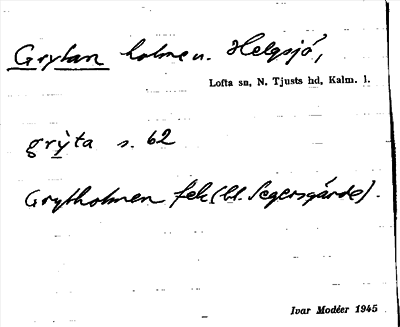 Grytan holme n. Helgsjö,
Lofta sn, N. Tjusts hd, Kalm. l.
grỳta s. 62
Grytholmen fek (bl. Segersgärde).
Ivar Modéer 1945